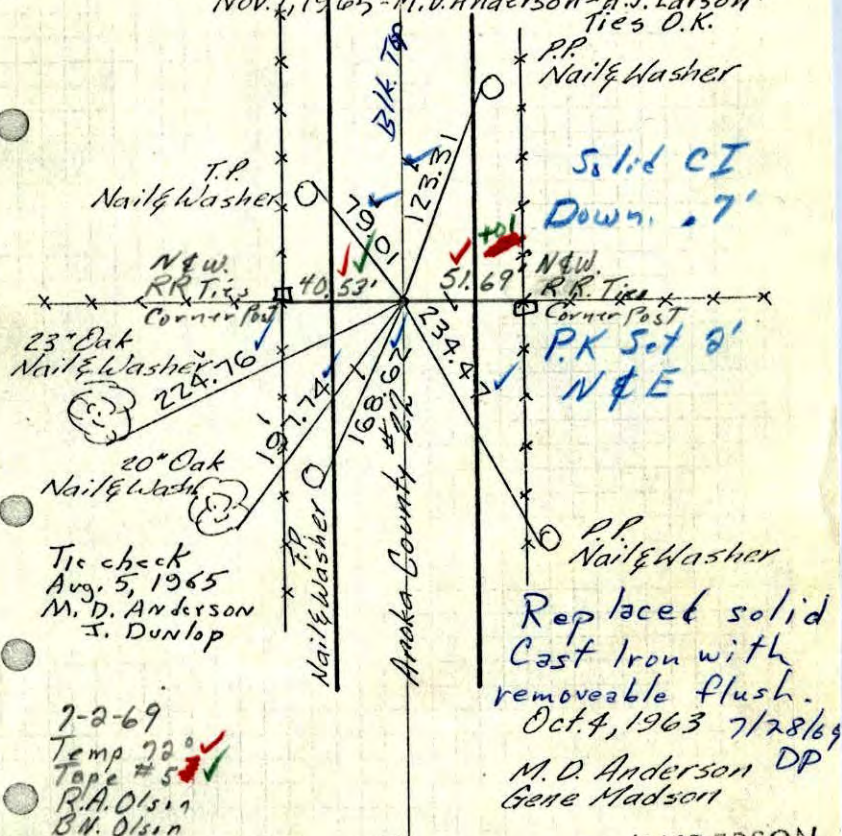 Nov. 1, 1965 - M.D. Anderson - A.J. Larson
Ties O.K.
P.P.
Nail & Washer
Blk. Top
123.31
Solid CI
Down. .7'
T.P.
Nail & Washer
79.01
+01
N & W.
RR Ties
Corner Post
40.53'
51.69'
N & W.
R.R. Ties
Corner Post
P.K Set 2'
N & E
23" Oak
Nail & Washer
224.76
234.47
197.74'
168.62
20" Oak
Nail & Wash
T.P.
Nail & Washer
Anoka County #22
P.P.
Nail & Washer
Tie check
Aug. 5, 1965
M. D. Anderson
J. Dunlop
Replaced solid
Cast Iron with
removeable flush.
7/28/69
DP
Oct. 4, 1963
M.D. Anderson
Gene Madson
7-2-69
Temp 72°
Tape # 5
R.A. Olsen
B.N. Olsen